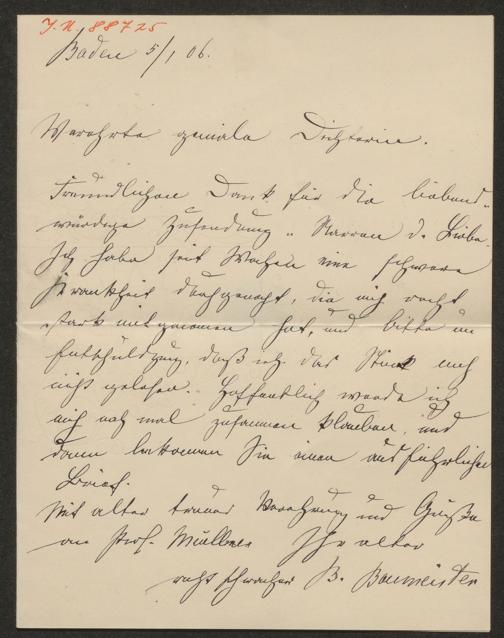 J. N. 88725
Baden 5/1 06.
Verehrte geniale Dichterin.
Freundlichen Dank für die liebens-
würdige Zusendung „Narren d. Liebe.
Ich habe seit Wochen eine schwere
Krankheit durchgemacht, die mich recht
stark mitgenomen hat, und bitte um
Entschuldigung, daß ich das Stück noch
nicht gelesen. Hoffentlich werde ich
mich noch mal zusammen klauben, und
dann bekomen Sie einen ausführlichen
Brief.
Mit alter treuer Verehrung und Grüße
an Prof. Müllner Ihr alter
recht schwacher B. Baumeister